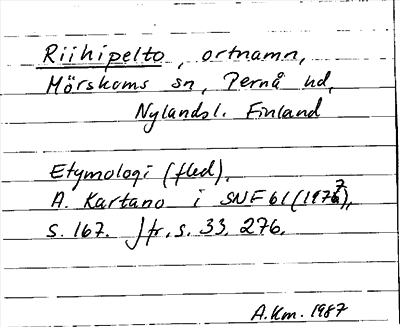 Riihipelto, ortnamn,
Mörskoms sn, Pernå hd,
Nylandsl. Finland
Etymologi (fled).
A. Kartano i SNF 61 (1977),
s. 167. Jfr. s. 33, 276.
A.Km. 1987